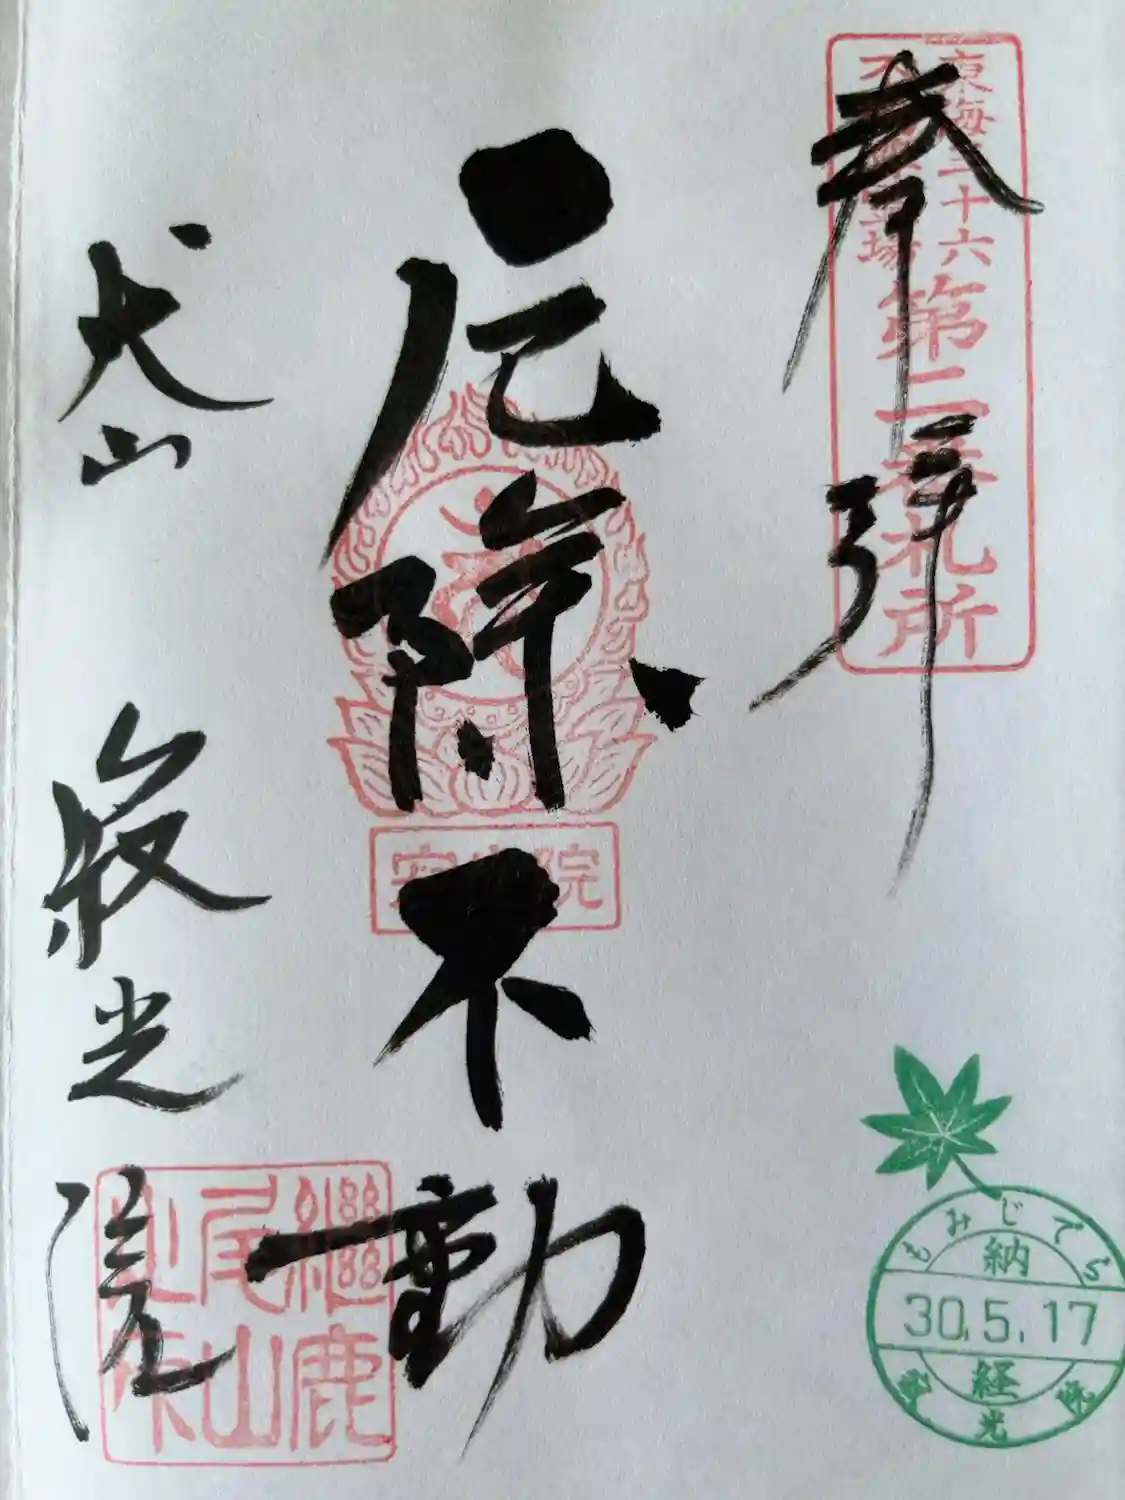 奉拝
東海三十六
不動尊霊場
第二番札所
厄除不動
院
犬山
寂光院
継鹿
尾山
もみじでら
納
30.5.17
経
寂光院